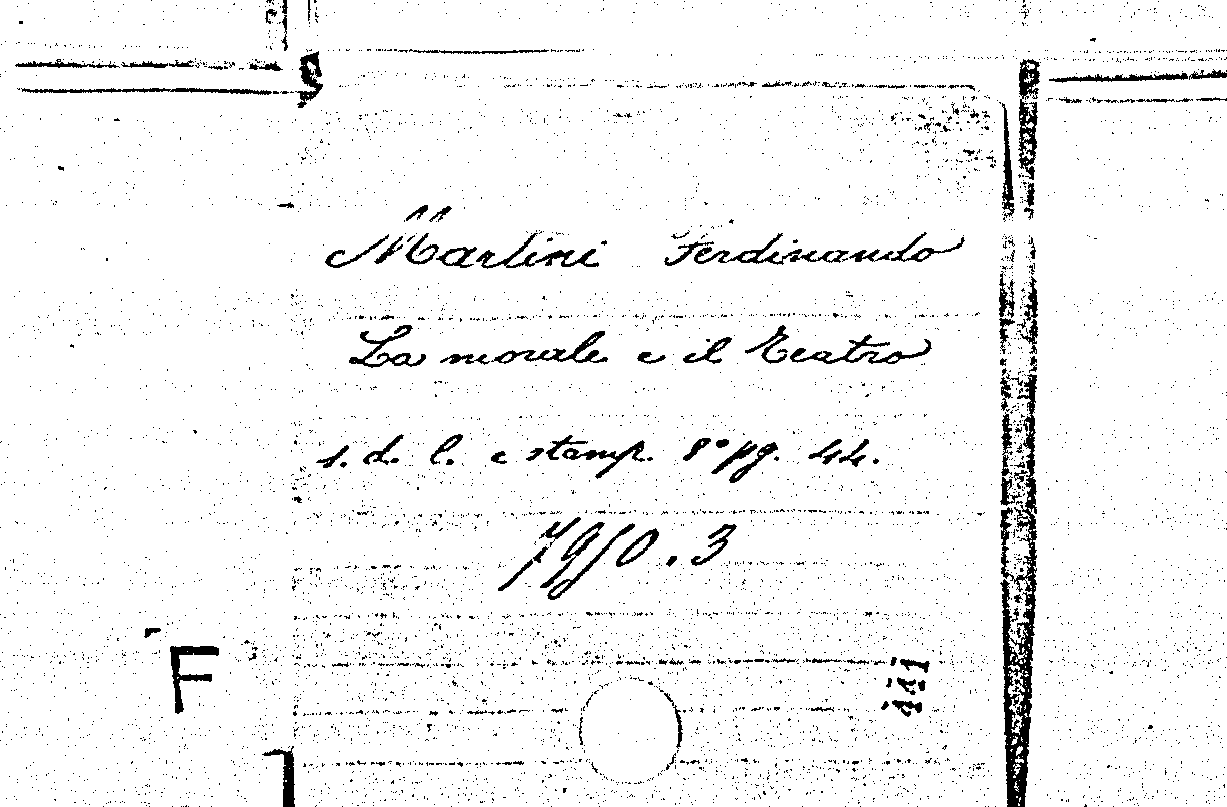 Martini Ferdinando
La morale e il Teatro
s. d. l. e stamp. 8° pg. 44.
7950.3
F